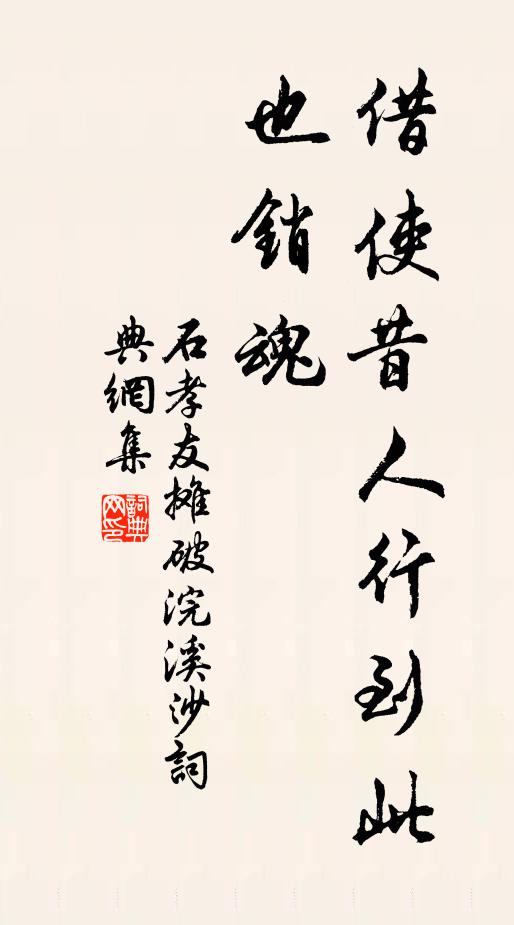 借使昔人行到此
也銷魂
石孝友攤破浣溪沙詞
典網集
詞典網印